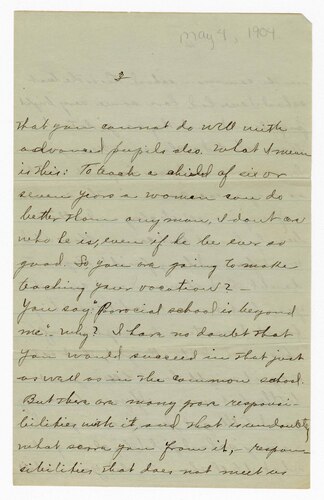 May 9, 1904
2
that you cannot do well with
advanced pupils also. What I mean
is this: To teach a child of six or
seven years a woman can do
better than any man, I dont care
who he is, even if he be ever so
good. So you are going to make
teaching your vocation? –
You say "Parocial school is beyond
me". Why? I have no doubt that
you would succeed in that just
as well as in the common school.
But there are many grave responsi-
bilities with it, and that is undoubtedly
what scares you from it, – respon-
sibilities that does not meet us